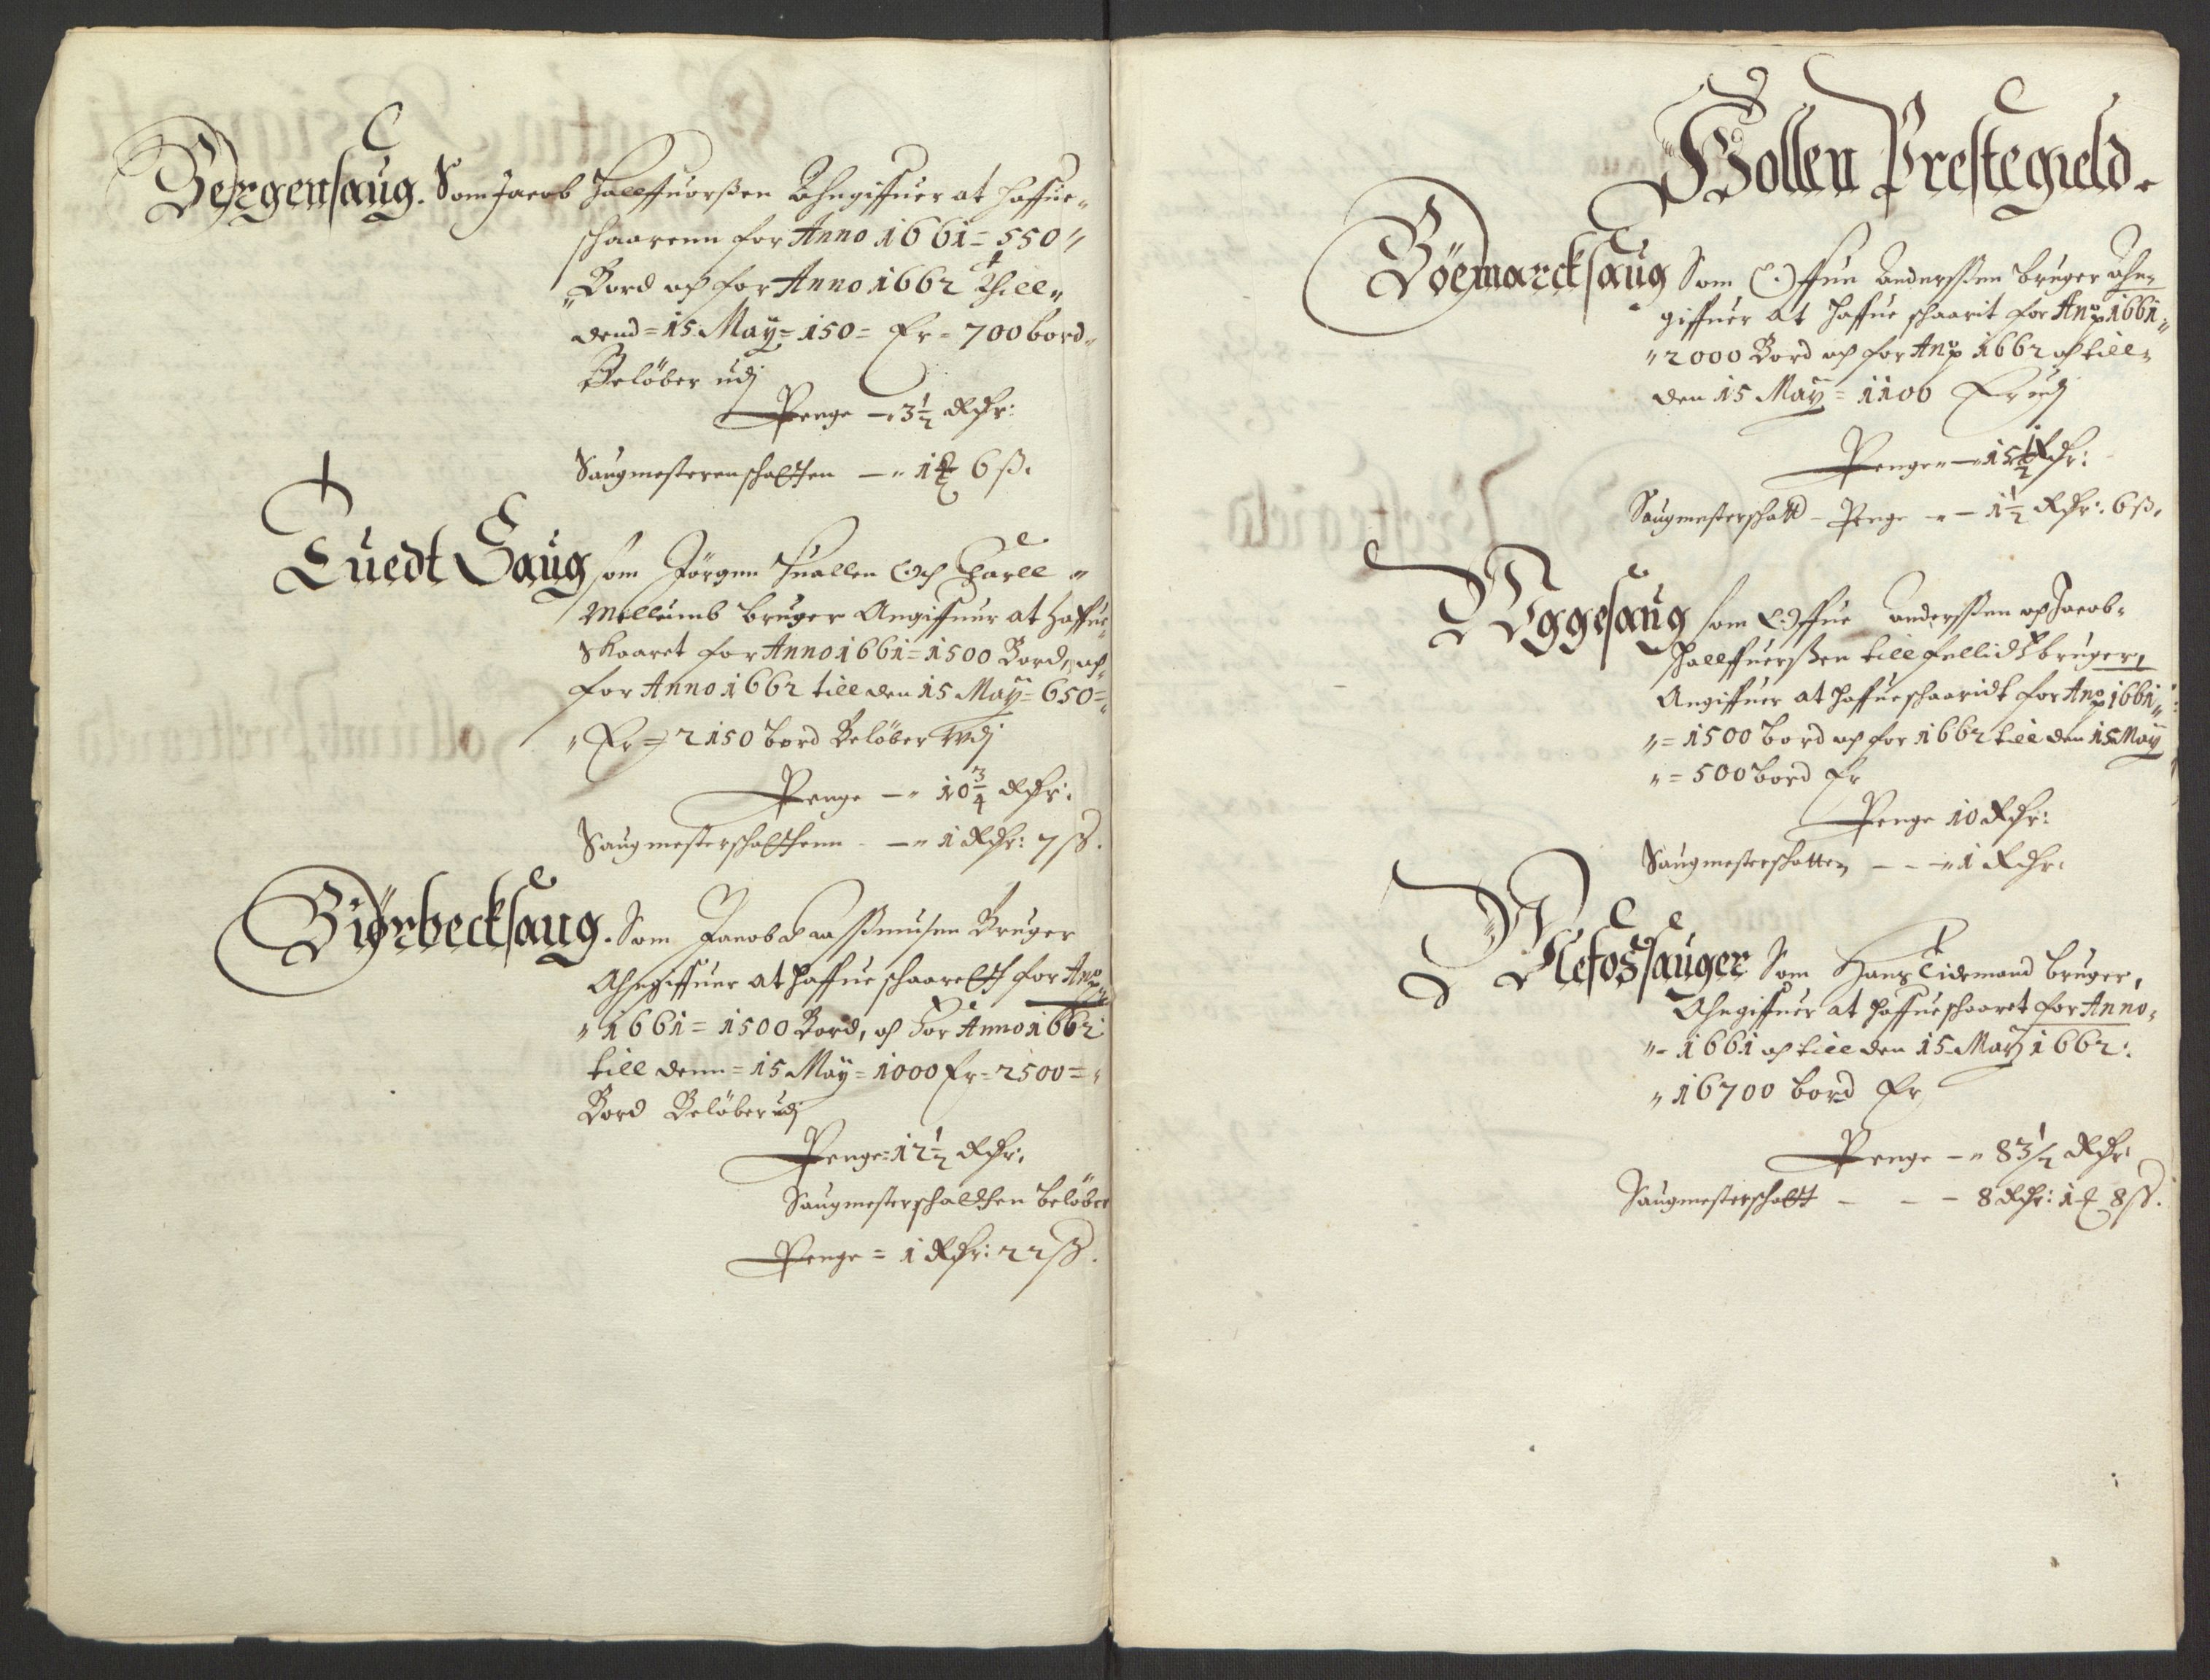 Bergensaug. Som Jacob Hallffuorßen Ahngiffuer at haffue
schaarenn for Anno 1661 = 550
Bord och for Anno 1662 Thill
dend = 15 May = 150 = Er = 700 bord
Beløber udj
Penge — 3½ Rdr:
Saugmesterenschatten — 1 6 ß.
Tuedt Saug som Jørgen Och
Mellumb bruger Angiffuer at haffue
Skaaret for Anno 1661 = 1500 Bord, och
for Anno 1662 till den 15 May = 650 =
Er = 2150 bord Beløber Vdj
Penge — 10¾ Rdr:
Saugmesterschatthenn — 1 Rdr: 7 ß.
Biørbecksaug. Som Jacob Raßmusen Bruger
Ahngiffuer at haffue schaaret for Ano
1661 = 1500 Bord, och For Anno 1662
till denn = 15 May = 1000 Er = 2500 =
Bord Beløber udj
Penge = 12½ Rdr:
Saugmesterschatthen beløber
Penge = 1 Rdr: 22 ß.
Hollen Prestegield.
Bøemarcksaug Som Offue Anderssen bruger Ahn-
giffuer at haffue schaarit for Ano 1661
2000 Bord och for Ano 1662 och till
den 15 May = 1100 Er udj
Penge — 15½ Rdr:
Saugmesterschatt – Penge – 1½ Rdr: 6 ß.
Wggesaug som Offue Anderssen och Jacob
Hallffuerßen till fellids bruger,
Angiffuer at haffue schaaridt for Ano 1661
= 1500 bord och for 1662 till den 15 May
= 500 bord Er
Penge 10 Rdr:
Saugmesterschatten — 1 Rdr:
Nefossauger Som Hans Tidemand bruger,
Ahngiffuer at haffue schaaret for Anno
1661 och till den 15 May 1662:
16700 bord Er
Penge — 83½ Rdr
Saugmesterschatt – – – 8 Rdr: 1 8 ß.